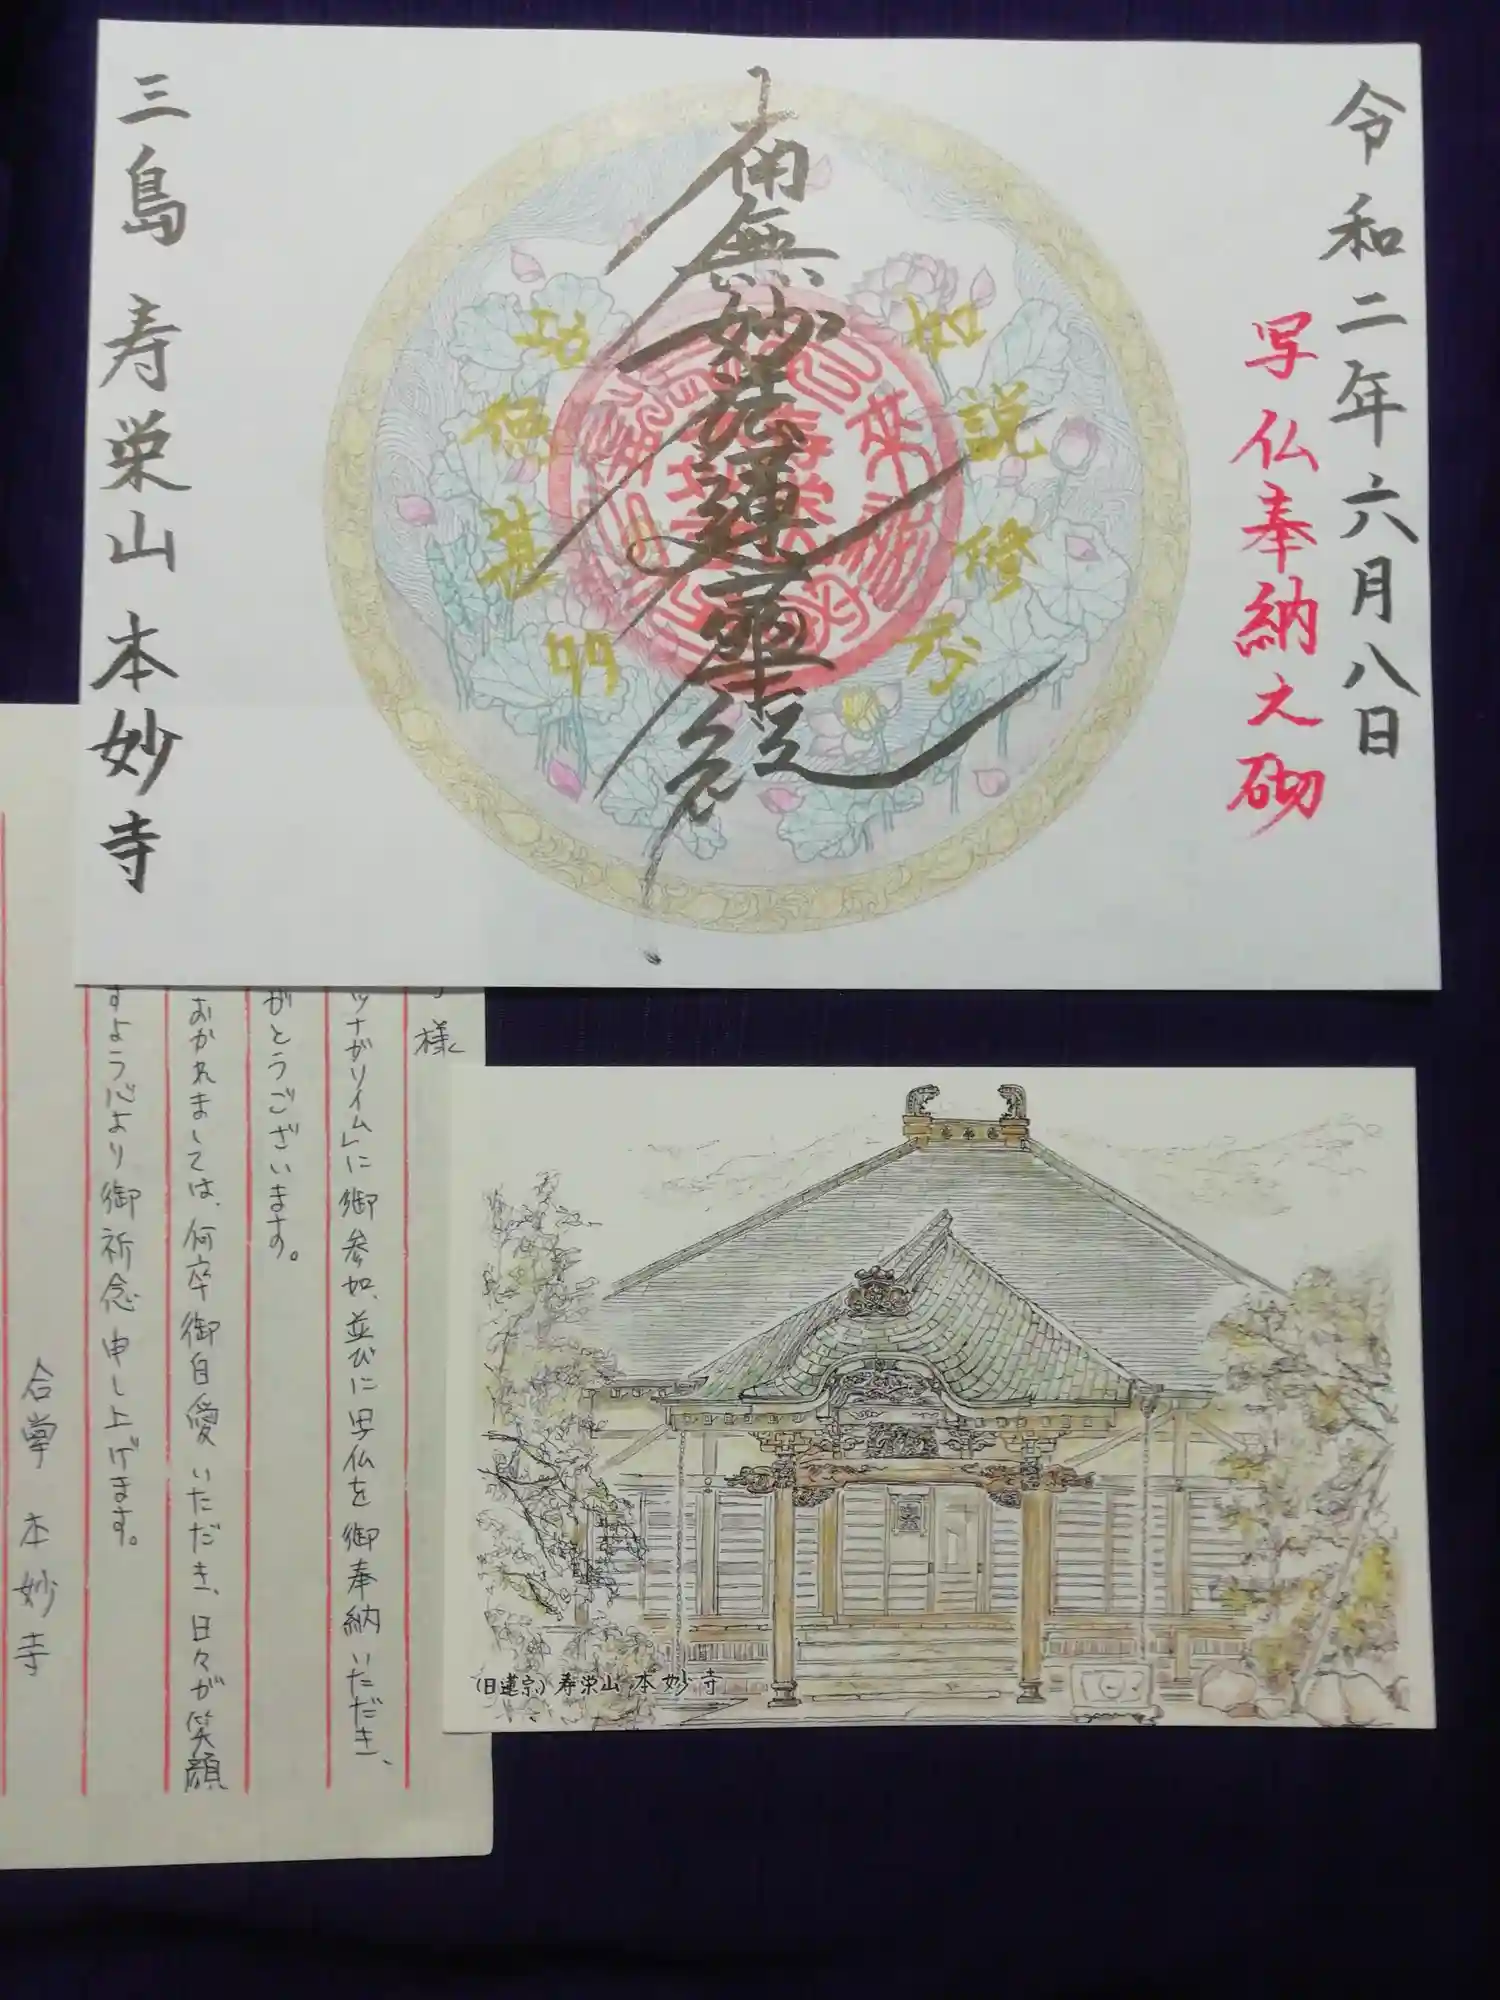 令和二年六月八日
写仏奉納之砌
南無妙法蓮華経
如説修行
功徳甚多
三島 寿栄山 本妙寺
様
ツナガリイム」に御参加、並びに写仏を御奉納いただき、
がとうございます。
おかれましては、何卒御自愛いただき、日々が笑顔
すよう心より御祈念申し上げます。
合掌 本妙寺
(日蓮宗) 寿栄山 本妙寺